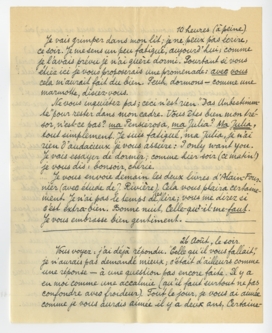 10 heures (à peine)
Je vais grimper dans mon lit; je ne peux pas écrire,
ce soir. Je me sens un peu fatigué, aujourd'hui; comme
je l'avais prévu je n'ai guère dormi. Pourtant si vous
étiez ici je vous proposerais une promenade; avec vous
cela m'aurait fait du bien. Peut dormons - comme une
marmotte, disez-vous.
Ne vous inquiétez pas; ceci n'est rien. Das Unbestimmte
pour rester dans mon cadre. Vous êtes bien mon
n'est ce pas? ma ma Julia? Ma Julia,
tout simplement. Je suis fatigué, ma Julia, je n'ai
rien d'audacieux je vous assure: I only want you.
Je vais essayer de dormir; comme hier soir (ce matin!)
je vous dis: bonsoir, chérie.
Je vous envoie demain les deux livres d'Alain-Four-
nier (avec étude de Rivière). Cela vous plaira certaine-
ment. Je n'ai pas le temps de lire; vous me direz si
c'est très bien. Bonne nuit, Celle-qu'il-me-faut.
Je vous embrasse bien gentiment.
21 Août, le soir.
Vous voyez: j'ai déjà répondu. "Celle qu'il vous fallait",
je n'aurais pas demandé mieux; c'était d'ailleurs comme
une réponse - à une question pas encore faite. Il y a
en moi comme une accalmie (qu'il faut surtout ne pas
confondre avec froideur). Tout le jour, je vous ai aimée
comme je vous aurais aimée il y a deux ans. Certaine-